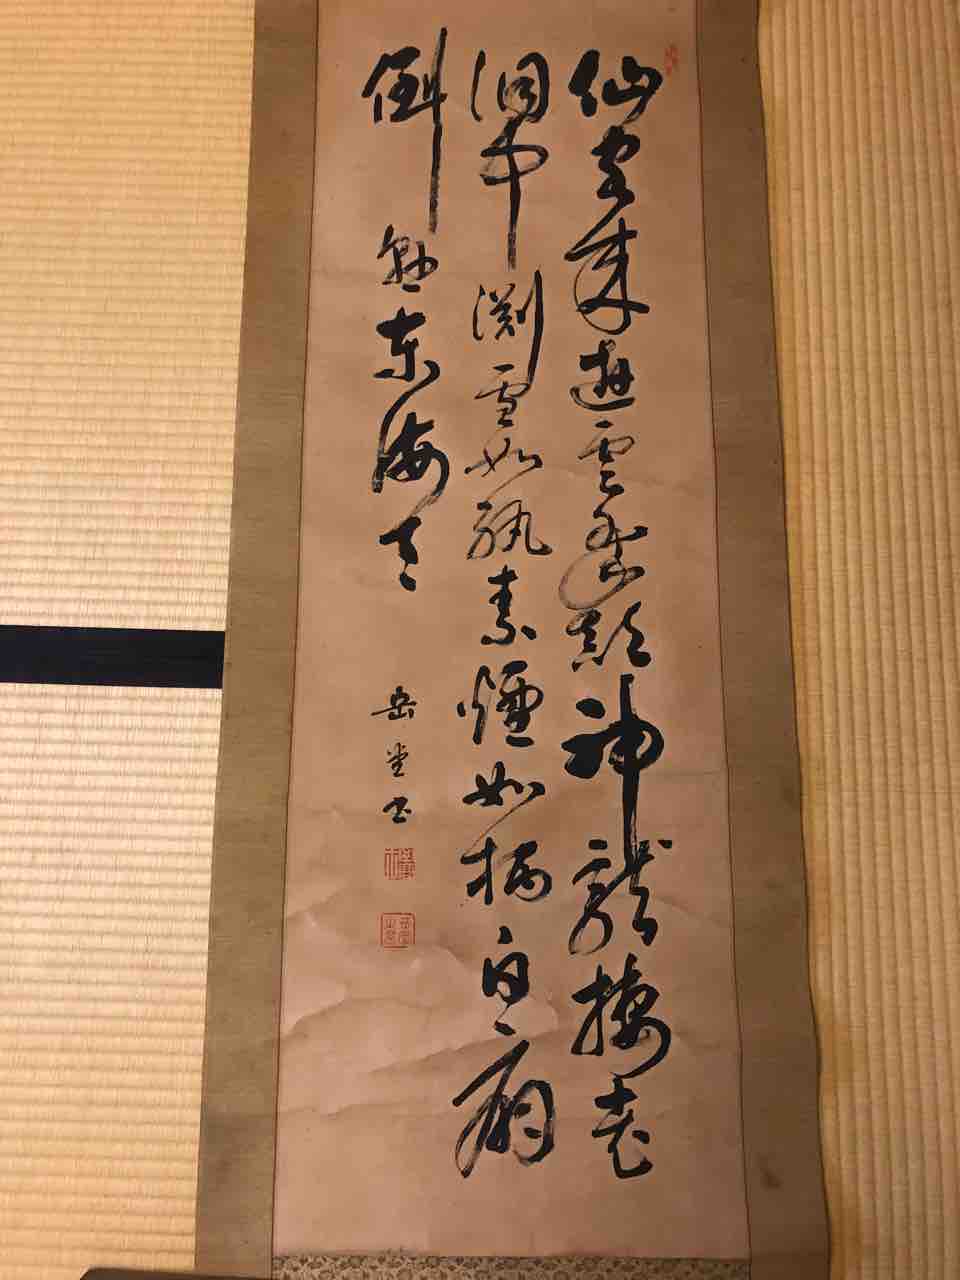 仙客来遊雲外巓神龍棲老
洞中淵雪如紈素煙如柄白扇
倒懸東海天
岳堂書